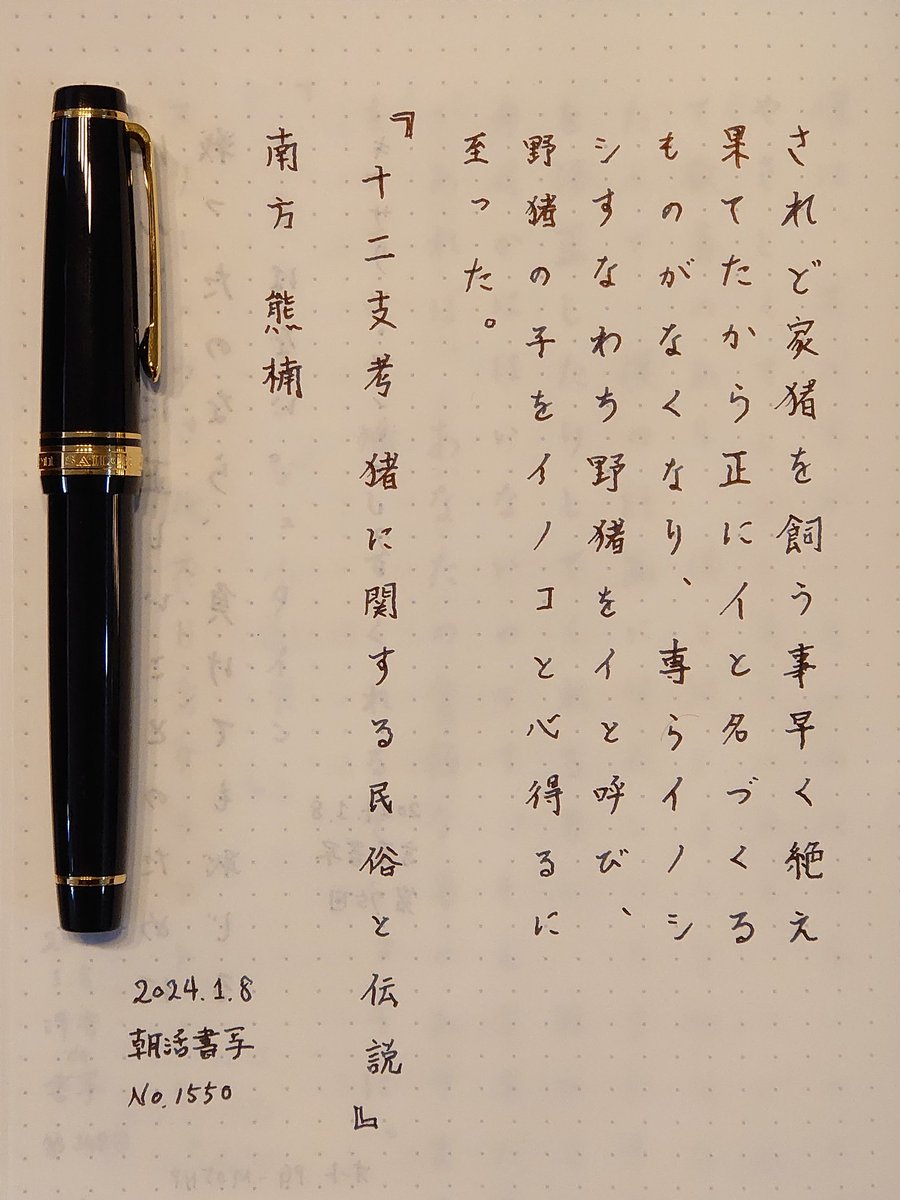 されど家猪を飼う事早く絶え
果てたから正にイと名づくる
ものがなくなり、専らイノシ
シすなわち野猪をイと呼び、
野猪の子をイノコと心得るに
至った。
『十二支考 猪に関する民俗と伝説』
南方 熊楠
2024.1.8
朝活書写
No.1550